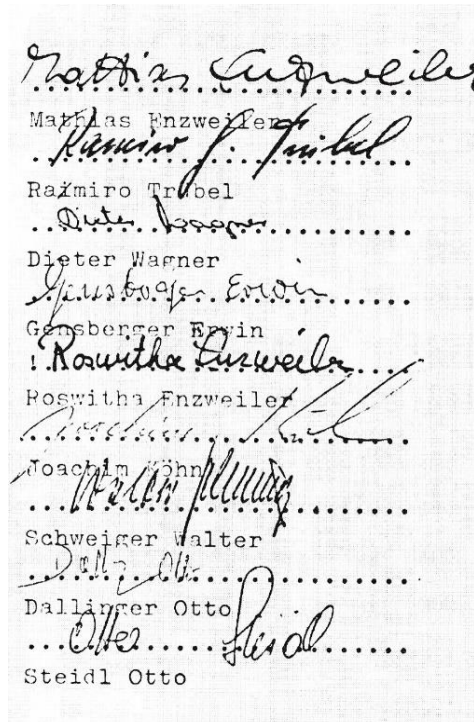 Mathias Enzweiler
Mathias Enzweiler
Ramiro J. Trübel
Raimiro Trübel
Dieter Wagner
Dieter Wagner
Gensberger Erwin
Gensberger Erwin
Roswitha Enzweiler
Roswitha Enzweiler
Joachim Köhn
Joachim Köhn
Walter
Schweiger Walter
Dallinger Otto
Otto Steidl
Steidl Otto